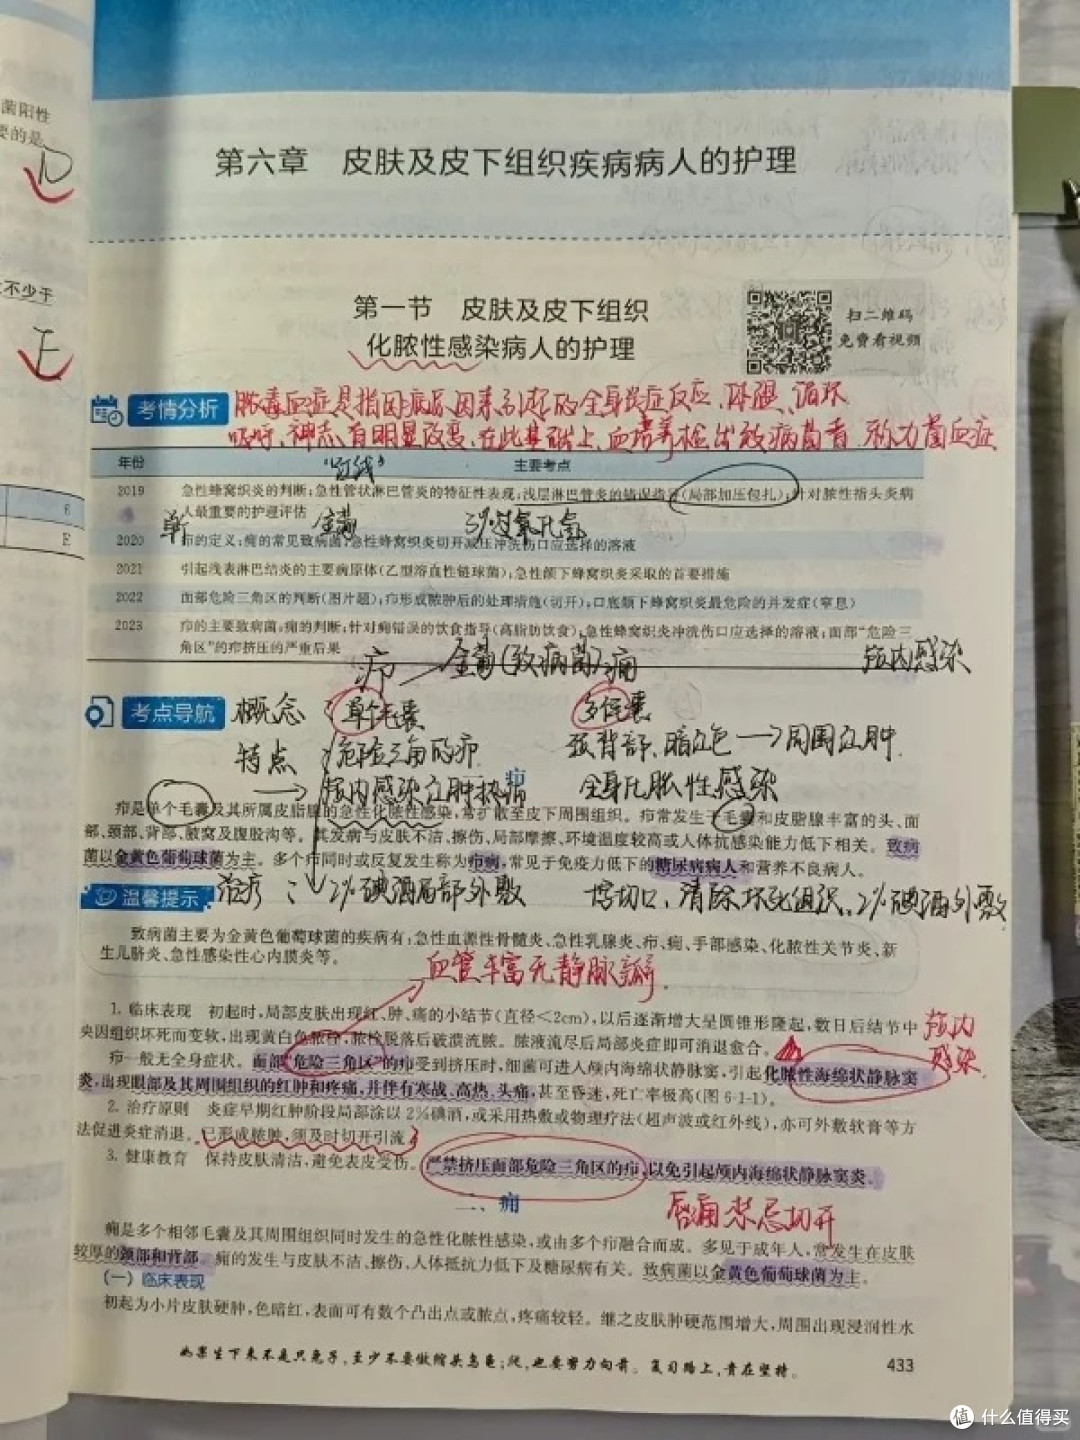 菌阳性
要的是
D
不少于
E
E
第六章 皮肤及皮下组织疾病病人的护理
第一节 皮肤及皮下组织
化脓性感染病人的护理
扫二维码
免费看视频
考情分析
脓毒血症是指因病原因素引起的全身炎症反应、体温、循环
呼吸、神志有明显改变,在此基础上,血培养检出致病菌者 称为菌血症
年份 主要考点
“红线”
2019 急性蜂窝织炎的判断;急性管状淋巴管炎的特征性表现;浅层淋巴管炎的错误指导(局部加压包扎);针对脓性指头炎病
人最重要的护理评估
单 金葡 3%过氧化氢
2020 疖的定义;痈的常见致病菌;急性蜂窝织炎切开减压冲洗伤口应选择的溶液
2021 引起浅表淋巴结炎的主要病原体(乙型溶血性链球菌);急性颌下蜂窝织炎采取的首要措施
2022 面部危险三角区的判断(图片题);疖形成脓肿后的处理措施(切开);口底颌下蜂窝织炎最危险的并发症(窒息)
2023 疖的主要致病菌;痈的判断;针对痈错误的饮食指导(高脂肪饮食);急性蜂窝织炎冲洗伤口应选择的溶液;面部“危险三
角区”的疖挤压的严重后果
疖 金葡(致病菌) 痈 颅内感染
考点导航
概念 单个毛囊 多个毛囊
特点 危险三角的疖 颈背部、暗红色→周围红肿
→颅内感染 红肿热痛 全身化脓性感染
一、疖
疖是单个毛囊及其所属皮脂腺的急性化脓性感染,常扩散至皮下周围组织。疖常发生于毛囊和皮脂腺丰富的头、面
部、颈部、背部、腋窝及腹股沟等。其发病与皮肤不洁、擦伤、局部摩擦、环境温度较高或人体抗感染能力低下相关。致病
菌以金黄色葡萄球菌为主。多个疖同时或反复发生称为疖病,常见于免疫力低下的糖尿病病人和营养不良病人。
温馨提示
治疗: 2%碘酒局部外敷 切口、清除坏死组织、2%碘酒外敷
致病菌主要为金黄色葡萄球菌的疾病有:急性血源性骨髓炎、急性乳腺炎、疖、痈、手部感染、化脓性关节炎、新
生儿脐炎、急性感染性心内膜炎等。
血管丰富无静脉瓣
1. 临床表现 初起时,局部皮肤出现红、肿、痛的小结节(直径<2cm),以后逐渐增大呈圆锥形隆起,数日后结节中
央因组织坏死而变软,出现黄白色脓栓,脓栓脱落后破溃流脓。脓液流尽后局部炎症即可消退愈合。
颅内
感染
疖一般无全身症状。面部“危险三角区”的疖受到挤压时,细菌可进入颅内海绵状静脉窦,引起化脓性海绵状静脉窦
炎,出现眼部及其周围组织的红肿和疼痛,并伴有寒战、高热、头痛,甚至昏迷,死亡率极高(图6-1-1)。
2. 治疗原则 炎症早期红肿阶段局部涂以2%碘酒,或采用热敷或物理疗法(超声波或红外线),亦可外敷软膏等方
法促进炎症消退。已形成脓肿,须及时切开引流。
3. 健康教育 保持皮肤清洁,避免表皮受伤。严禁挤压面部危险三角区的疖,以免引起颅内海绵状静脉窦炎。
二、痈
唇痈禁忌切开
痈是多个相邻毛囊及其周围组织同时发生的急性化脓性感染,或由多个疖融合而成。多见于成年人,常发生在皮肤
较厚的颈部和背部。痈的发生与皮肤不洁、擦伤、人体抵抗力低下及糖尿病有关。致病菌以金黄色葡萄球菌为主。
(一)临床表现
初起为小片皮肤硬肿,色暗红,表面可有数个凸出点或脓点,疼痛较轻。继之皮肤肿硬范围增大,周围出现浸润性水
如果生下来不是只兔子,至少不要做缩头乌龟;爬,也要努力向前。复习路上,贵在坚持。
433
值 什么值得买